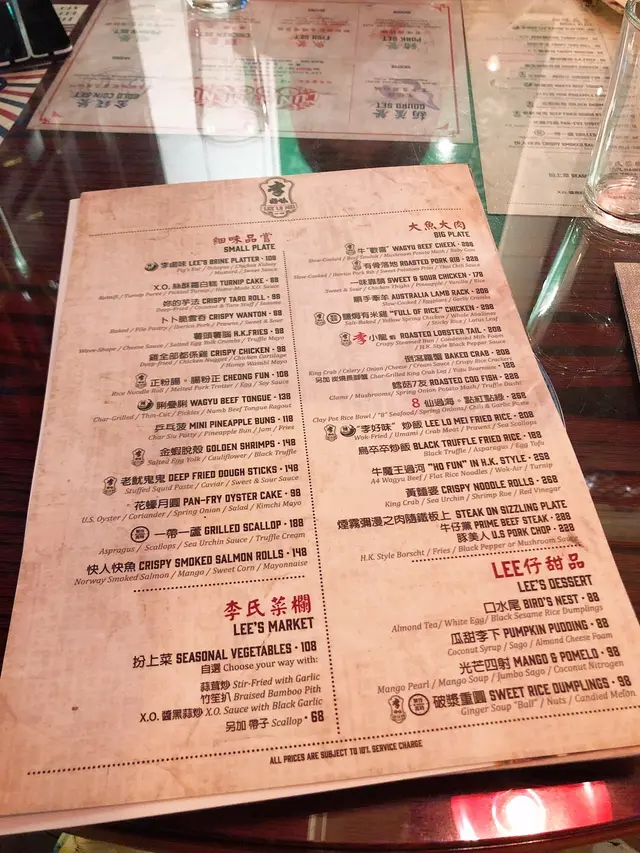 李
好味
LEE LO MEI
細味品嘗
SMALL PLATE
李鹵味 LEE'S BRINE PLATTER · 108
Pig's Ear / Octopus / Chicken Kidney
Mustard / Sweet Sauce
X.O. 絲酥蘿白糕 TURNIP CAKE · 88
CRISPY TARO ROLL · 98
卜卜脆雲吞 CRISPY WANTON · 88
Baked / Filo Pastry / Iberico Pork / Prawns / Sweet & Sour
薯頭薯腦 H.K.FRIES · 98
Wave-Shape / Cheese Sauce / Salted Egg Yolk Crumbs / Truffle Mayo
雞全部都係雞 CRISPY CHICKEN · 98
Deep-Fried / Chicken Nugget / Chicken Cartilage
/ Honey Wasabi Mayo
正粉腸。腸粉正 CHEONG FUN · 108
Rice Noodle Roll / Melted Pork Trotter / Egg / Soy Sauce
脷疊脷 WAGYU BEEF TONGUE · 138
Char-Grilled / Thin-Cut / Pickles / Numb Beef Tongue Ragout
乒乓菠 MINI PINEAPPLE BUNS · 118
Char Siu Patty / Pineapple Bun / Jam / Fries
金蝦脫殼 GOLDEN SHRIMPS · 148
Salted Egg Yolk / Cauliflower / Black Truffle
老魷鬼鬼 DEEP FRIED DOUGH STICKS · 148
Stuffed Squid Paste / Caviar / Sweet & Sour Sauce
花蠔月圓 PAN-FRY OYSTER CAKE · 98
U.S. Oyster / Coriander / Spring Onion / Salad / Kimchi Mayo
一帶一蘆 GRILLED SCALLOP · 188
Asparagus / Scallops / Sea Urchin Sauce / Truffle Cream
快人快魚 CRISPY SMOKED SALMON ROLLS · 148
Norway Smoked Salmon / Mango / Sweet Corn / Mayonnaise
李氏菜欄
LEE'S MARKET
扮上菜 SEASONAL VEGETABLES · 108
自選 Choose your way with:
蒜茸炒 Stir-Fried with Garlic
竹笙扒 Braised Bamboo Pith
X.O. 醬黑蒜炒 X.O. Sauce with Black Garlic
另加 帶子 Scallop · 68
大魚大肉
BIG PLATE
牛"歡喜" WAGYU BEEF CHEEK · 288
有骨落地 ROASTED PORK RIB · 228
一味靠腩 SWEET & SOUR CHICKEN · 178
Sweet & Sour / Chicken Thighs / Pineapple / Vanilla / Rice
順手牽羊 AUSTRALIA LAMB RACK · 208
Slow-Cooked / Eggplant / Garlic Crumbs
鹽焗有米雞 "FULL OF RICE" CHICKEN · 288
Salt-Baked / Yellow Spring Chicken / Whole Abalones
/ Sticky Rice / Lotus Leaf
李小龍蝦 ROASTED LOBSTER TAIL · 208
Crispy Steamed Bun / Condensed Milk Foam
/ H.K. Style Black Pepper Sauce
倒瀉籮蟹 BAKED CRAB · 208
King Crab / Celery / Onion / Cheese / Cream Sauce / Crispy Rice Crackers
另加 炭燒長腳蟹 Char-Grilled King Crab Leg / Yuzu Bearnaise · 128
鱈菇7友 ROASTED COD FISH · 228
Clams / Mushrooms / Spring Onion Potato Mash / Truffle Dashi
8 仙過海。點紅點綠 · 268
Clay Pot Rice Bowl / "8" Seafood / Spring Onions / Chili & Garlic Paste
"李好味" 炒飯 LEE LO MEI FRIED RICE · 208
Wok-Fried / Umami / Crab Meat / Prawns / Sea Salsa
烏卒卒炒飯 BLACK TRUFFLE FRIED RICE · 188
Black Truffle / Asparagus / Egg Tofu
牛魔王過河 "HO FUN" IN H.K. STYLE · 258
A4 Wagyu Beef / Flat Rice Noodles / Wok-Air / Turnip
黃麵婆 CRISPY NOODLE ROLLS · 268
King Crab / Sea Urchin / Shrimp Roe / Red Vinegar
煙霧彌漫之肉隨鐵板上 STEAK ON SIZZLING PLATE
牛仔黨 PRIME BEEF STEAK · 288
豚美人 U.S PORK CHOP · 228
H.K. Style Borscht / Fries / Black Pepper or Mushroom Sauce
LEE仔甜品
LEE'S DESSERT
口水尾 BIRD'S NEST · 88
Almond Tea / White Egg / Black Sesame Rice Dumplings
瓜甜李下 PUMPKIN PUDDING · 88
Coconut Syrup / Sago / Almond Cheese Foam
光芒四射 MANGO & POMELO · 98
Mango Pearl / Mango Soup / Jumbo Sago / Coconut Nitrogen
破漿重圓 SWEET RICE DUMPLINGS · 98
Ginger Soup "Ball" / Nuts / Candied Melon
ALL PRICES ARE SUBJECT TO 10% SERVICE CHARGE